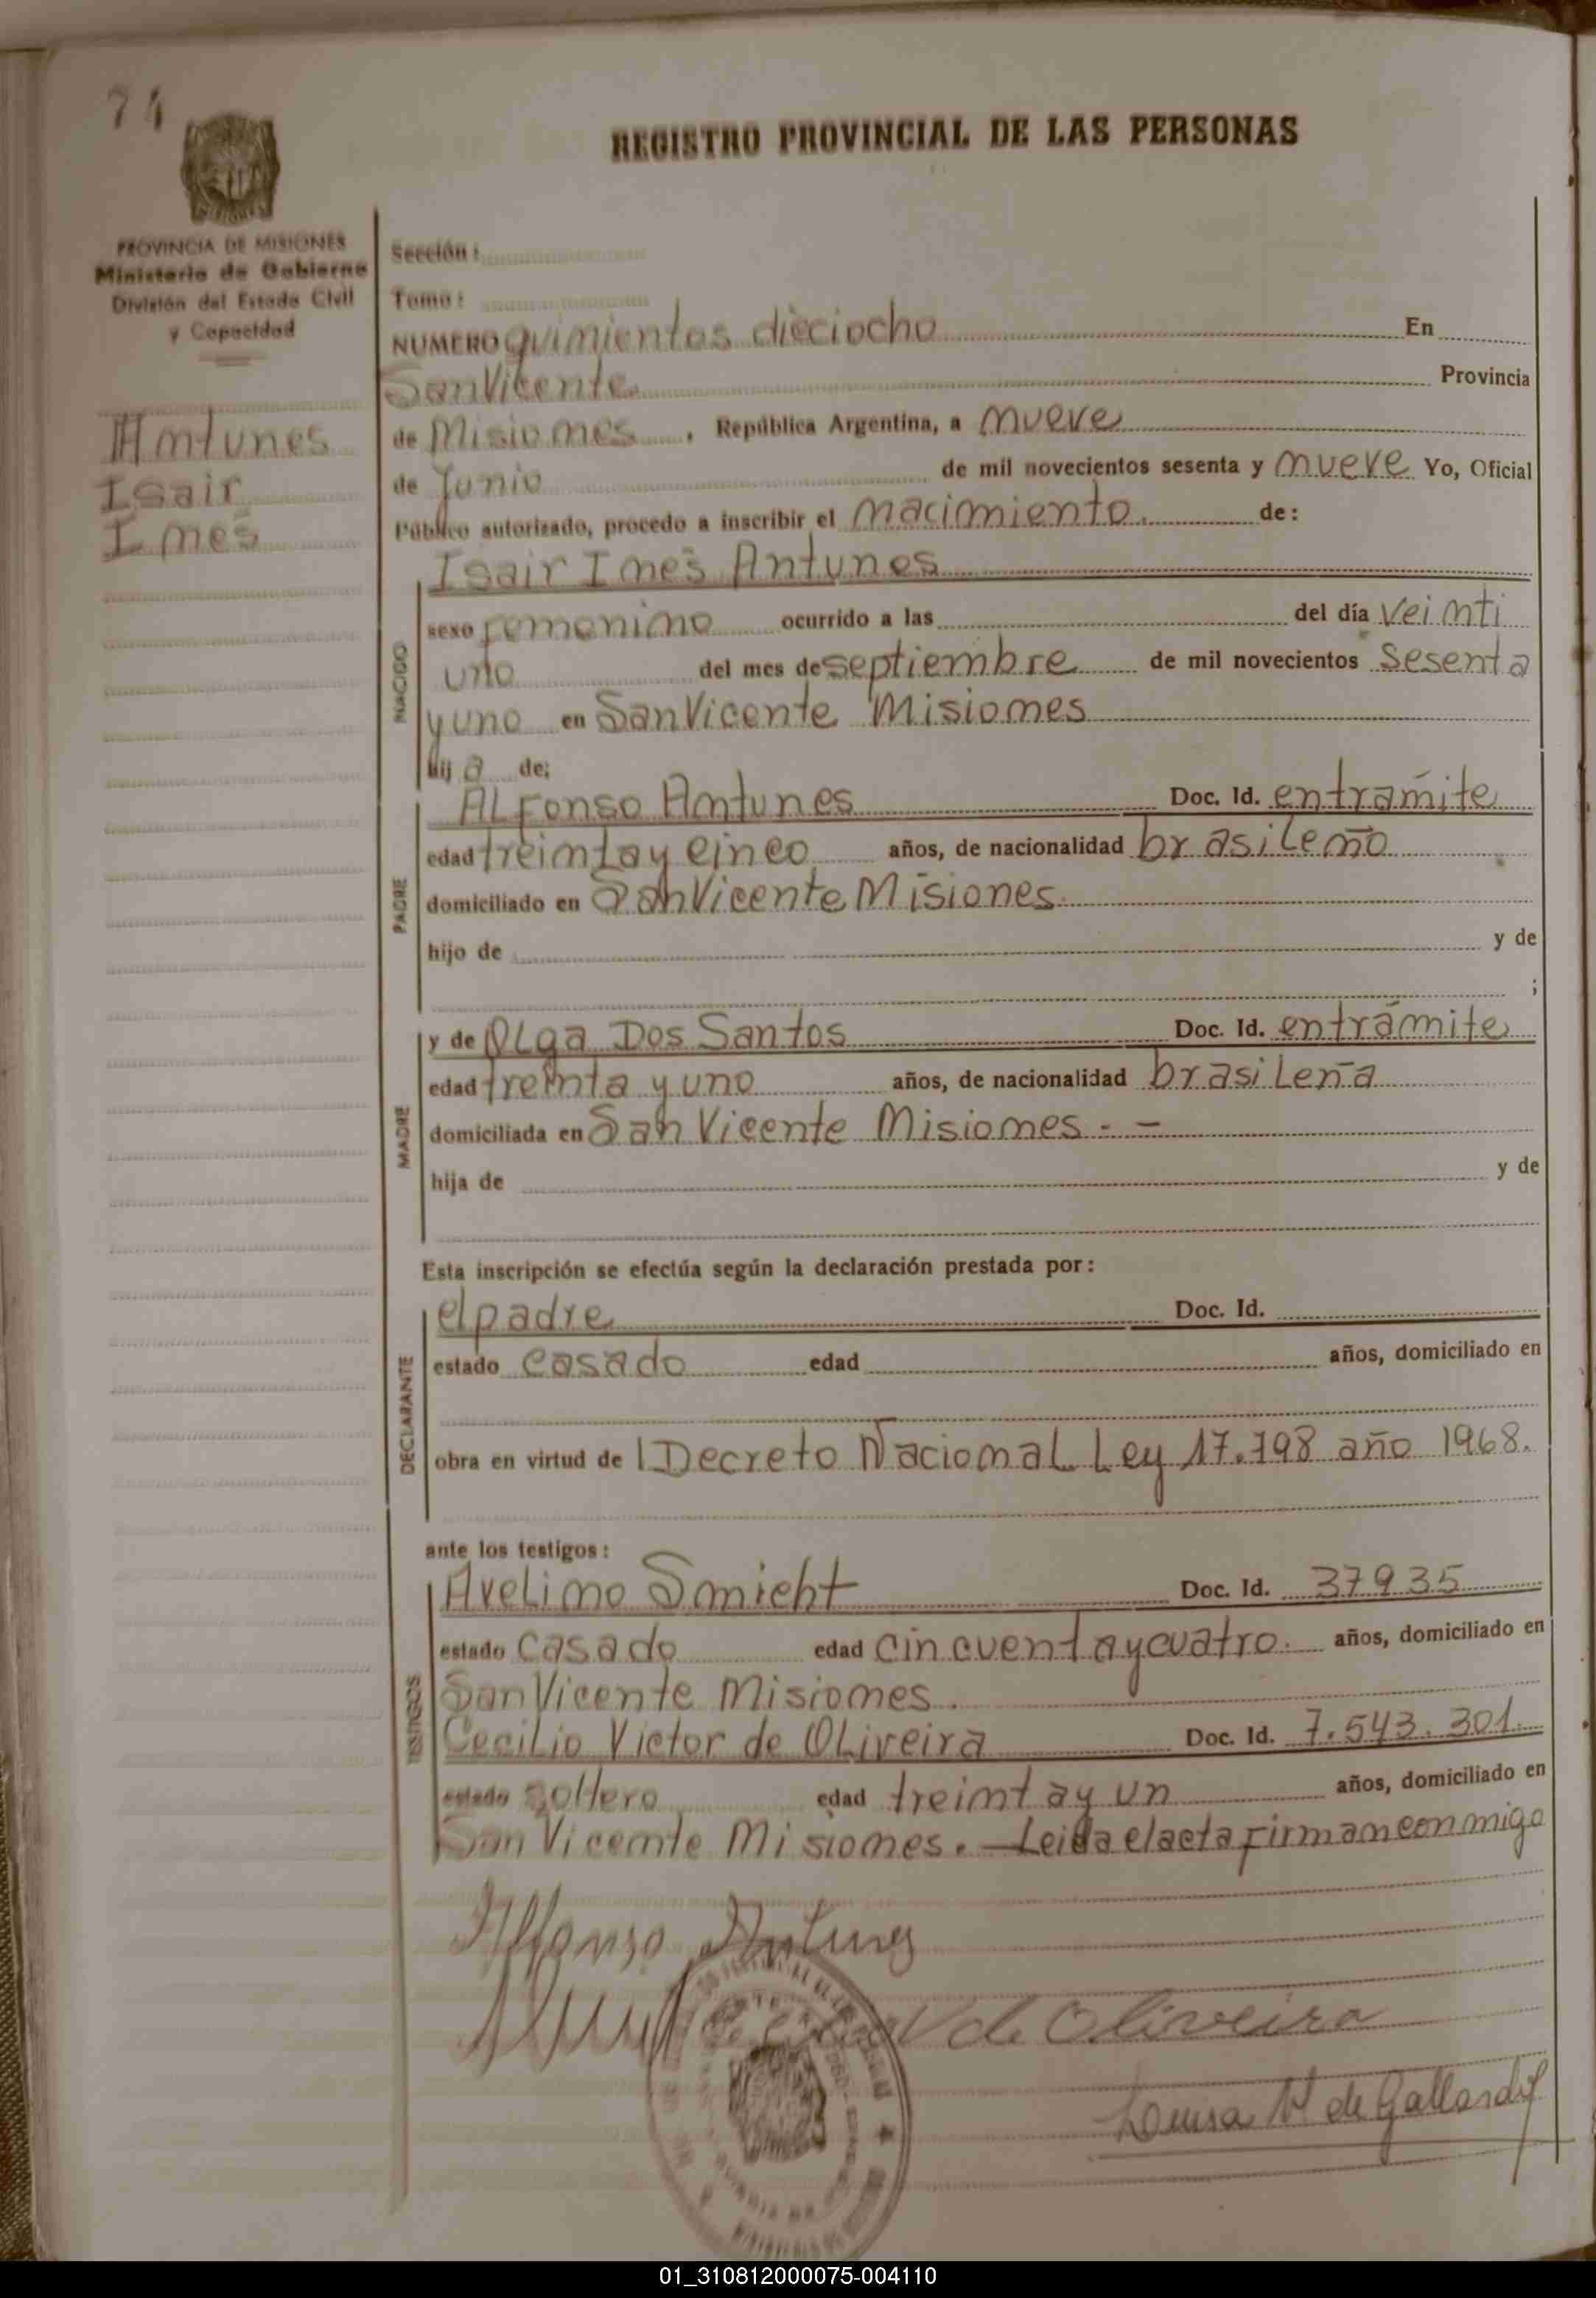 74
REGISTRO PROVINCIAL DE LAS PERSONAS
PROVINCIA DE MISIONES
Ministerio de Gobierno
División del Estado Civil
y Capacidad
Antunes
Isair
Ines
Sección:
Tomo:
NUMERO quinientos dieciocho En
San Vicente Provincia
de Misiones, República Argentina, a nueve
de Junio de mil novecientos sesenta y nueve Yo, Oficial
Público autorizado, procedo a inscribir el nacimiento. de:
Isair Ines Antunes
NACIDO
sexo femenino ocurrido a las del día veinti
uno del mes de septiembre de mil novecientos sesenta
y uno en San Vicente Misiones
hij a de:
PADRE
Alfonso Antunes Doc. Id. en tramite
edad treinta y cinco años, de nacionalidad brasileño
domiciliado en San Vicente Misiones.
hijo de y de
;
MADRE
y de Olga Dos Santos Doc. Id. en tramite
edad treinta y uno años, de nacionalidad brasileña
domiciliada en San Vicente Misiones - –
hija de y de
Esta inscripción se efectúa según la declaración prestada por:
DECLARANTE
el padre Doc. Id.
estado casado edad años, domiciliado en
obra en virtud de Decreto Nacional Ley 17.798 año 1968.
ante los testigos:
TESTIGOS
Avelino Smicht Doc. Id. 37935
estado casado edad cincuenta y cuatro. años, domiciliado en
San Vicente Misiones.
Cecilio Victor de Oliveira Doc. Id. 7.543.301.
estado soltero edad treinta y un años, domiciliado en
San Vicente Misiones. — Leida el acta firman conmigo
Alfonso Antunes
V de Oliveira
de Gallardo
01_310812000075-004110